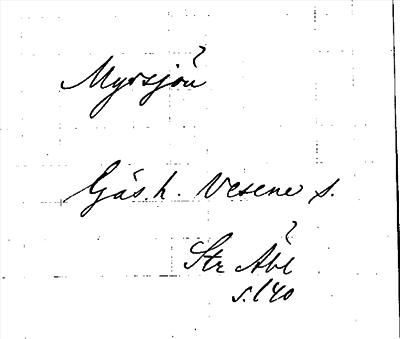 Myrsjön
Gäs. h. Vesene s.
Str Åbl
s. 140